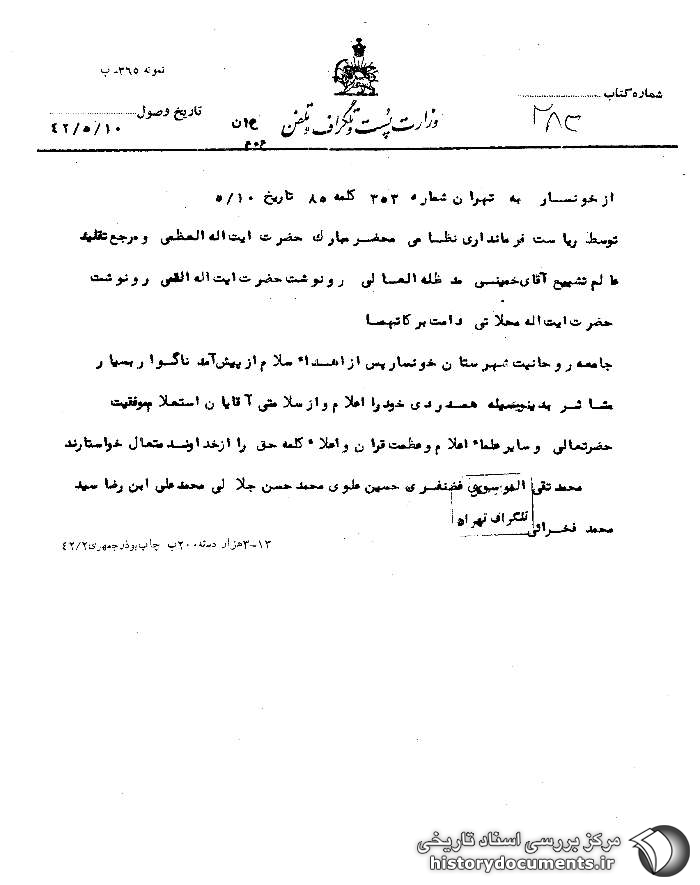 نمونه ۳۶۵- ب
شماره کتاب
۲۸۳
وزارت پست و تلگراف و تلفن
تاریخ وصول
۴۲/۵/۱۰
از خونسار به تهران شماره ۳۵۳ کلمه ۸۵ تاریخ ۵/۱۰
توسط ریاست فرمانداری نظامی محضر مبارک حضرت ایت اله العظمی و مرجع تقلید
عالم تشیع آقای خمینی مد ظله العالی رونوشت حضرت ایت اله القمی رونوشت
حضرت ایت اله محلاتی دامت برکاتهما
جامعه روحانیت شهرستان خونسار پس از اهداء سلام از پیش آمد ناگوار بسیار
متاثر بدینوسیله همدردی خود را اعلام و از سلامتی آقایان استعلام موفقیت
حضرتعالی و سایر علماء اعلام و عظمت قران و اعلاء کلمه حق را از خداوند متعال خواستارند
محمد تقی الموسوی غضنفری حسین علوی محمد حسن جلالی محمد علی ابن رضا سید
محمد فخرائی
تلگراف تهران
۱۳-۳ هزار دسته ۲۰۰ ب چاپ بوذرجمهری ۴۲/۲
مرکز بررسی اسناد تاریخی
historydocuments.ir